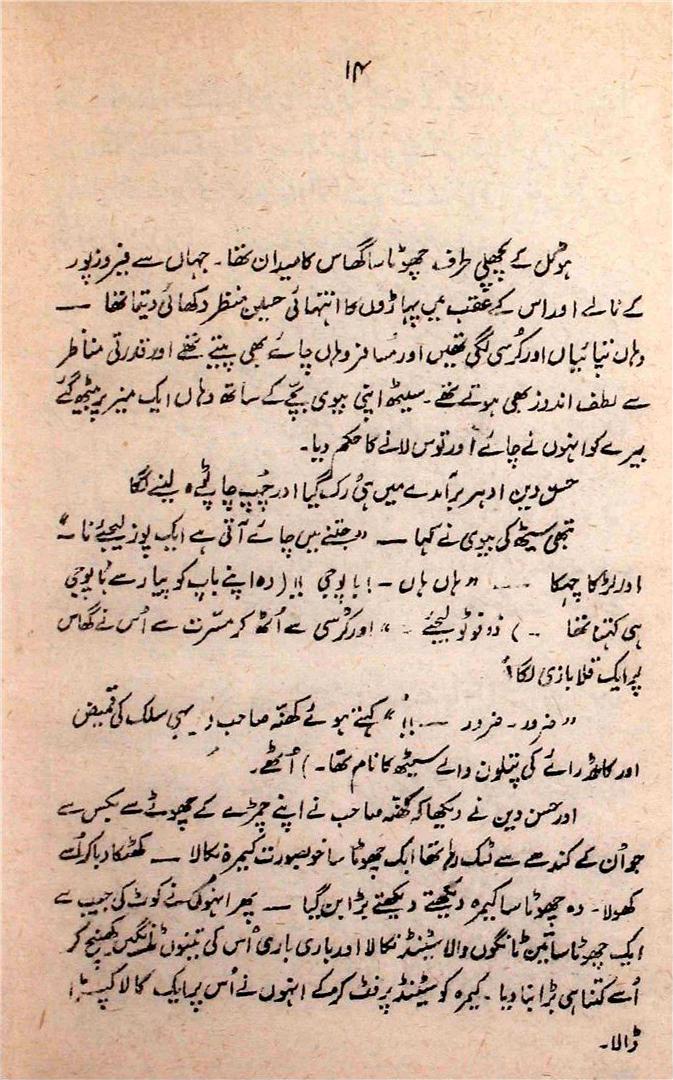 ۱۴
ہوٹل کے پچھلی طرف چھوٹا سا گھاس کا میدان تھا۔ جہاں سے فیروز پور
کے نالے اور اس کے عقب میں پہاڑوں کا انتہائی حسین منظر دکھائی دیتا تھا —
وہاں تپائیاں اور کُرسی لگی تھیں اور مُسافر وہاں چائے بھی پیتے تھے اور قدرتی مناظر
سے لطف اندوز بھی ہوتے تھے۔ سیٹھ اپنی بیوی بچّے کے ساتھ وہاں ایک میز پر بیٹھ گئے
بیرے کو انہوں نے چائے اور توس لانے کا حکم دیا۔
حسن دین ادھر برآمدے میں ہی رک گیا اور چُپ چاپ لینے لگا
تبھی سیٹھ کی بیوی نے کہا — ”جتنے میں چائے آتی ہے ایک پوز لیجئے نا —“
اور لڑکا چہکا ۔۔۔ ”ہاں ہاں - ! بابوجی !! (وہ اپنے باپ کو پیار سے بابوجی
ہی کہتا تھا ۔۔) فوٹو لیجئے ۔“ اور کُرسی سے اُٹھ کر مسّرت سے اُس نے گھاس
پر ایک قلابازی لگائی
”ضرور۔ ضرور —.!!“ کہتے ہوئے کھنّہ صاحب (یہی سلک کی قمیض
اور کاڈرائے کی پتلون والے سیٹھ کا نام تھا۔) اُٹھے۔
اور حسن دین نے دیکھا کہ کھنّہ صاحب نے اپنے چمڑے کے چھوٹے سے بکس سے
جو اُن کے کندھے سے لٹک رہا تھا ایک چھوٹا سا خوبصورت کیمرہ نکالا — کھٹکا دبا کر اُسے
کھولا۔ وہ چھوٹا سا کیمرہ دیکھتے دیکھتے بڑا بن گیا — پھر انہوں نے کوٹ کی جیب سے
ایک چھوٹا سا تین ٹانگوں والا سٹینڈ نکالا اور باری باری اُس کی تینوں ٹانگیں کھینچ کر
اُسے کتنا ہی بڑا بنا دیا۔ کیمرہ کو سٹینڈ پر فٹ کر کے انہوں نے اُس پر ایک کالا کپڑا
ڈالا۔